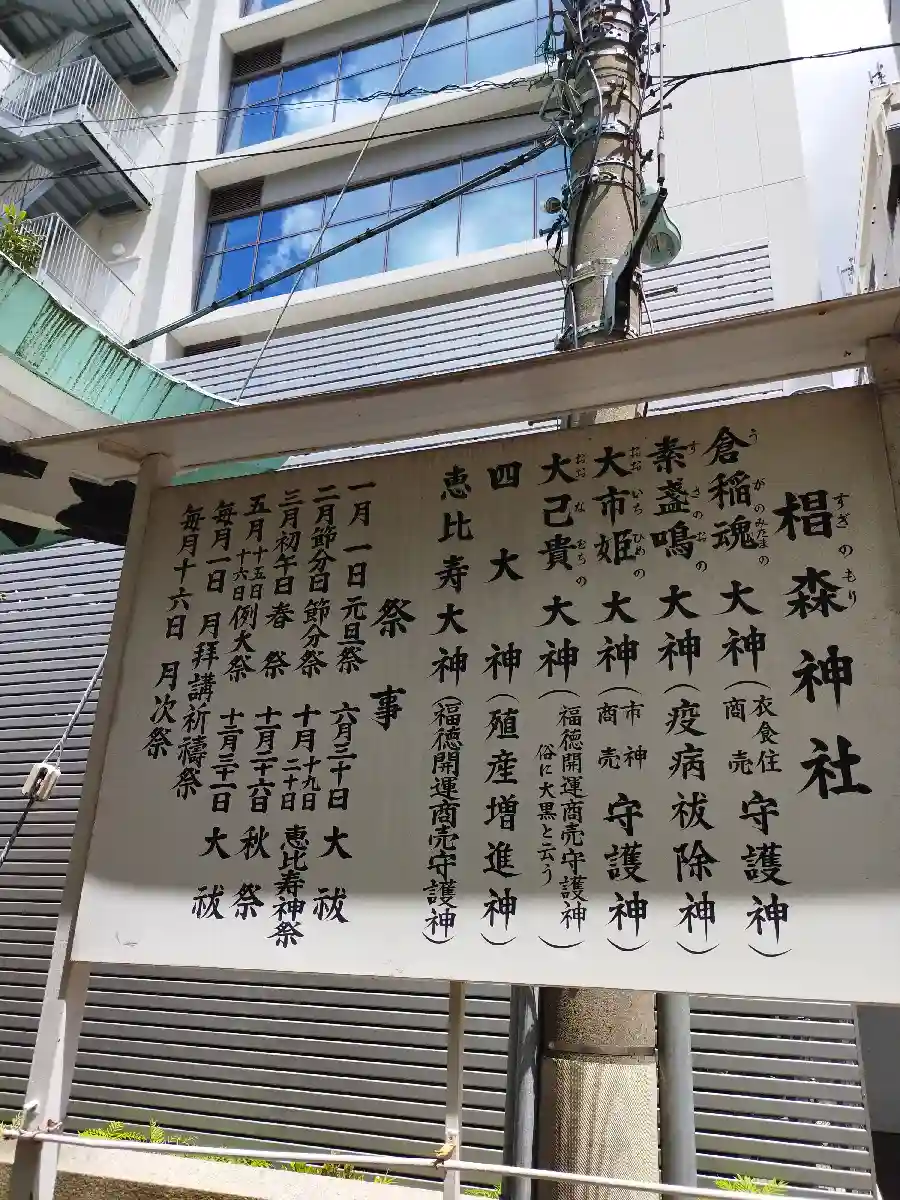 椙森神社
すぎのもり
倉稲魂大神(衣食住商売守護神)
うがのみたまの
素盞鳴大神(疫病祓除神)
すさのおの
大市姫大神(市神商売守護神)
おおいちひめの
大己貴大神(福徳開運商売守護神俗に大黒と云う)
おおなむちの
四大神(殖産増進神)
恵比寿大神(福徳開運商売守護神)
祭事
一月一日元旦祭
二月節分日節分祭
三月初午日春祭
五月十五日十六日例大祭
毎月一日月拝講祈禱祭
毎月十六日月次祭
六月三十日大祓
十月十九日二十日恵比寿神祭
十一月二十六日秋祭
十二月三十一日大祓